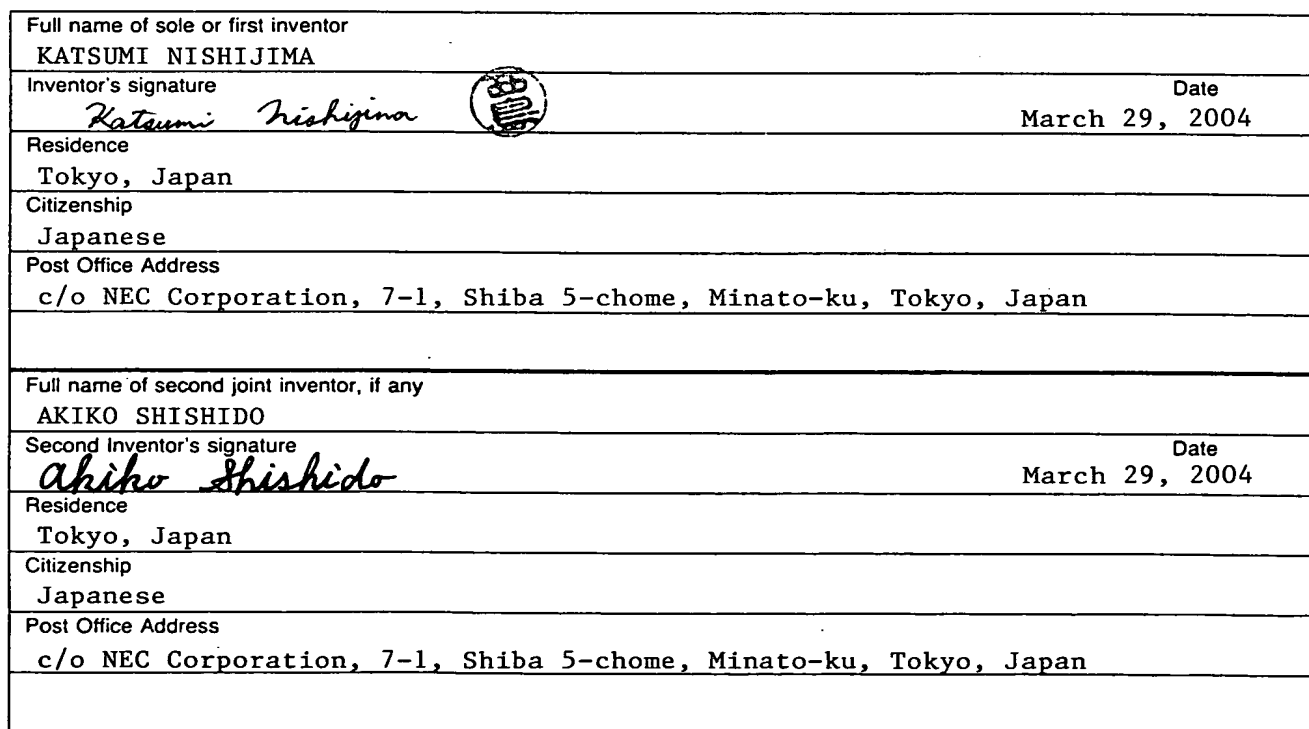 Full name of sole or first inventor
KATSUMI NISHIJIMA
Inventor's signature
Date
Katsumi Nishijima
March 29, 2004
Residence
Tokyo, Japan
Citizenship
Japanese
Post Office Address
c/o NEC Corporation, 7-1, Shiba 5-chome, Minato-ku, Tokyo, Japan
Full name of second joint inventor, if any
AKIKO SHISHIDO
Second Inventor's signature
Date
Akiko Shishido
March 29, 2004
Residence
Tokyo, Japan
Citizenship
Japanese
Post Office Address
c/o NEC Corporation, 7-1, Shiba 5-chome, Minato-ku, Tokyo, Japan